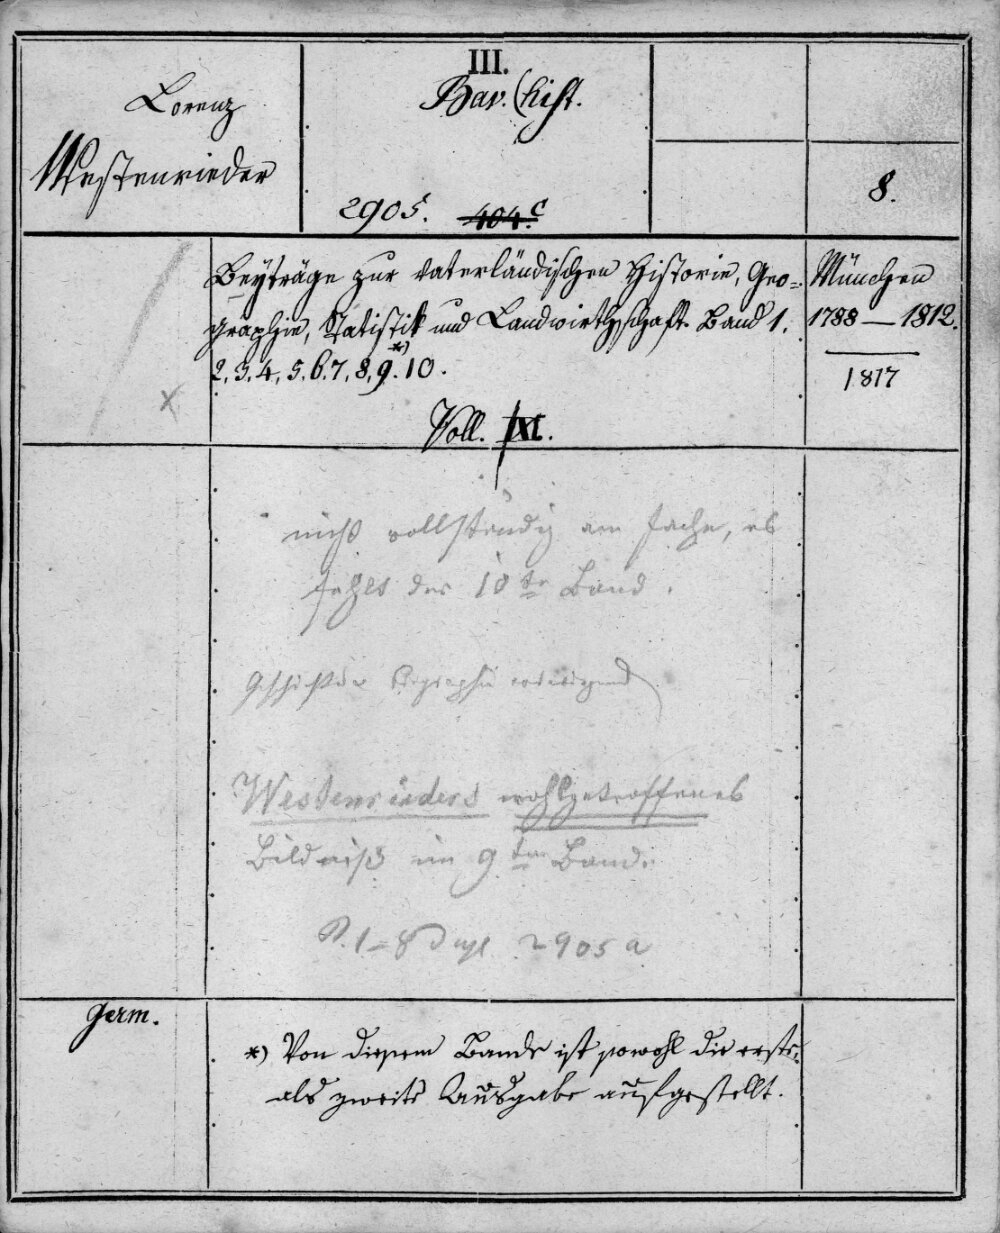 III.
Lorenz
Westenrieder
Bav. (hist.
2905. 404.c
8.
Beyträge zur vaterländischen Historie, Geo=
graphie, Statistik und Landwirthschaft. Band 1.
2, 3, 4, 5, 6, 7, 8, 9.*) 10.
Voll.
München
1788 — 1812.
1817
x
nicht vollständig am Fache, es
fehlt der 10te Band.
Westenrieders wohlgetroffenes
Bildniß im 9ten Band.
1-8 Dupl. 2905 a
Germ.
*) Von diesem Bande ist sowohl die erste,
als zweite Ausgabe aufgestellt.